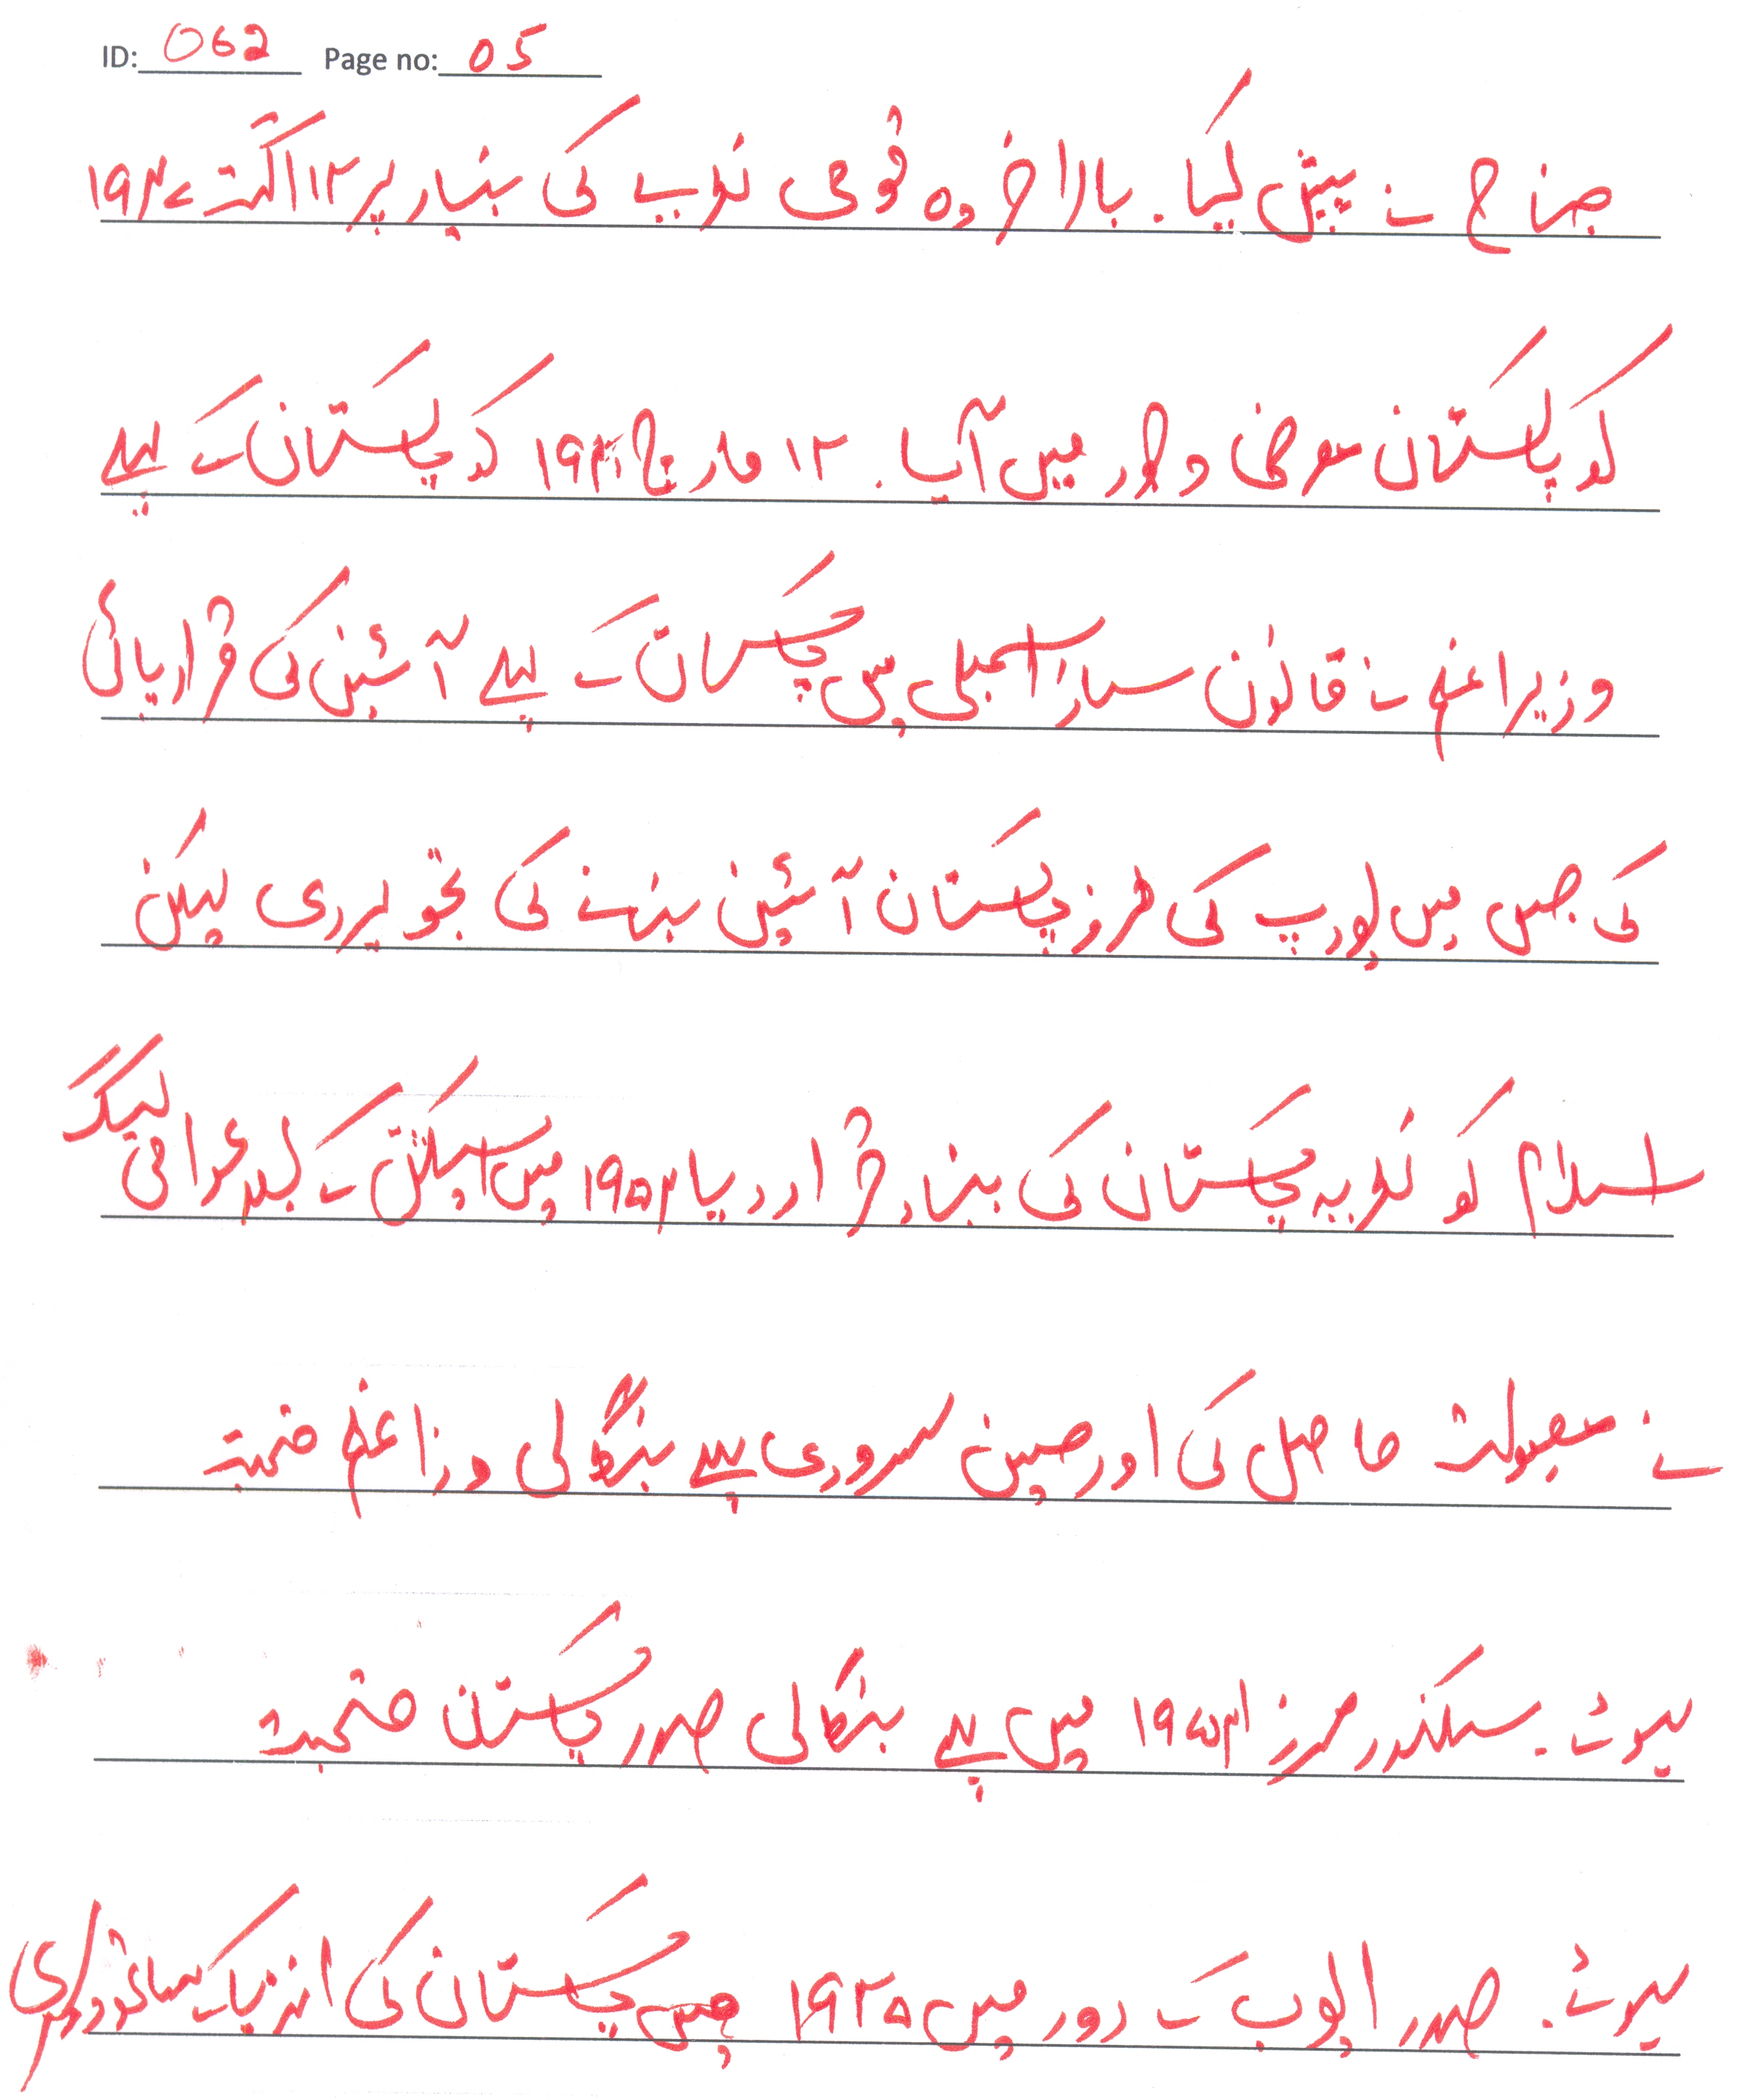 ID: 062 Page no: 05
جناح نے پیش کیا. بالراخر وہ قومی نظریے کی بنیاد پر ۱۴ اگست ۱۹۴۷
کو پاکستان معرضی وظور میں آیا. ۱۲ مارچ ۱۹۴۹ کو پاکستان کے لیے
وزیراعظم نے قانون ساز اسمبلی میں پاکستان کے لیے آئین کی قراریائی
کی جس میں یورپ کی طرز پاکستان آئین بنانے کی تجویز دی لیکن
اسلام کو نظریہ پاکستان کی بنیاد قرار دیا ۱۹۵۴ میں الیکشن کے بعد عوامی لیگ
نے مقبولت حاصل کی اور حسین سروردی پہلے بنگالی وزاعظم منتخبت
ہوئے۔ سکندر مرزا ۱۹۵۴ میں پہلے بنگالی صدر پاکستان منتخبت
ہوئے. صدر ایوب کے دور میں ۱۹۲۵ میں پاکستان کی انڈیا کے ساتھ دوسری